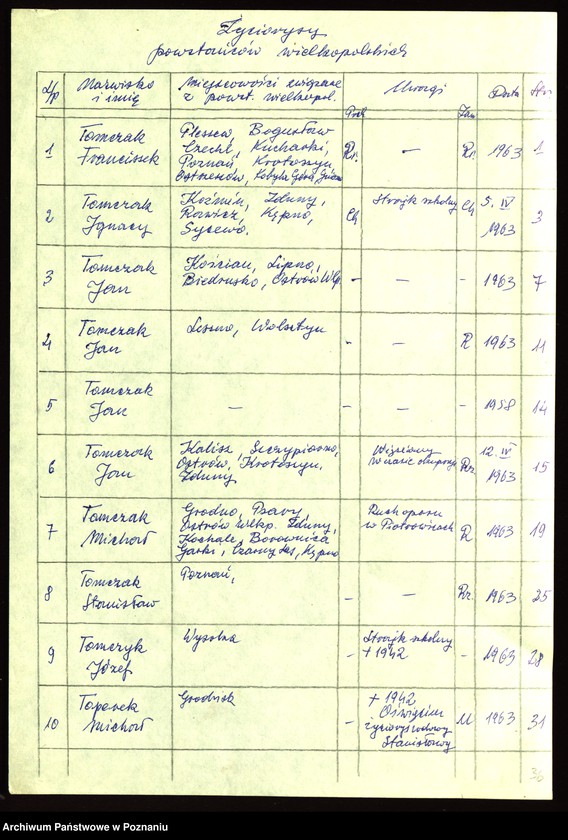 Życiorysy
powstańców wielkopolskich
L/p
Nazwisko
i imię
Miejscowości związane
z powst. wielkopol.
Uwagi
Data
Str.
1
Tomczak
Franciszek
Plessew, Bogusław
Czechl, Kucharki,
Poznań, Krotoszyn
Ostrzeszów, Kobyla Góra
Rz.
—
Rz.
1963
1
2
Tomczak
Ignacy
Koźmin, Zduny,
Rawicz, Kępno,
Sycewo.
Ch
Strajk szkolny
Ch
5. IV
1963
3
3
Tomczak
Jan
Kościan, Lipno,
Biedrusko, Ostrów Wlp.
-
—
-
1963
7
4
Tomczak
Jan
Leszno, Wolsztyn
-
—
R
1963
11
5
Tomczak
Jan
—
-
—
-
1958
14
6
Tomczak
Jan
Kalisz, Szczypiorno,
Ostrów, Krotoszyn,
Zduny
Więziony
w czasie okupacji
Rz
12. IV
1963
15
7
Tomczak
Michał
Grodno,
Ostrów Wlkp. Zduny,
Kochale, Borownica
Garki, Czarny Las, Kępno
Ruch oporu
w Piotrowicach
R
1963
19
8
Tomczak
Stanisław
Poznań,
-
—
Rz.
1963
25
9
Tomczyk
Józef
Wysoka
-
Strajk szkolny
+ 1942
-
1963
28
10
Toporek
Michał
Grodzisk
-
+ 1942
Oświęcim
życiorys
M
1963
31
30
Archiwum Państwowe w Poznaniu